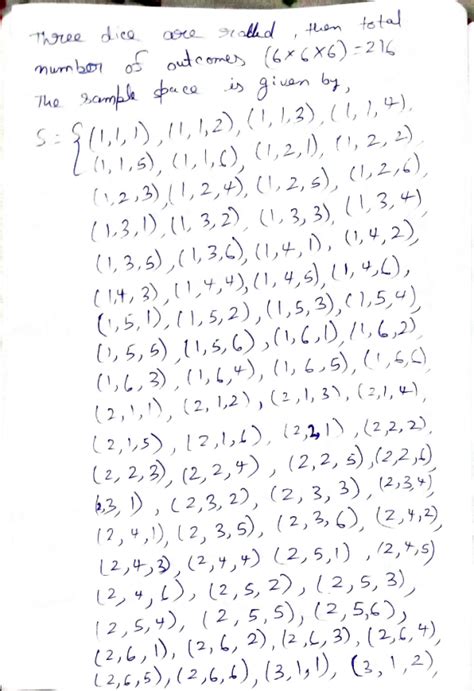 Three dice are rolled, then total
number of outcomes (6×6×6)=216
The sample space is given by,
S = {(1,1,1), (1,1,2), (1,1,3), (1,1,4),
(1,1,5), (1,1,6), (1,2,1), (1,2,2),
(1,2,3), (1,2,4), (1,2,5), (1,2,6),
(1,3,1), (1,3,2), (1,3,3), (1,3,4)
(1,3,5), (1,3,6), (1,4,1), (1,4,2),
(14,3), (1,4,4), (1,4,5), (1,4,6),
(1,5,1), (1,5,2), (1,5,3), (1,5,4)
(1,5,5), (1,5,6), (1,6,1), (1,6,2)
(1,6,3), (1,6,4), (1,6,5), (1,6,6)
(2,1,1), (2,1,2), (2,1,3), (2,1,4),
(2,1,5), (2,1,6), (2,2,1), (2,2,2),
(2,2,3), (2,2,4), (2,2,5), (2,2,6)
2,3,1), (2,3,2), (2,3,3), (2,3,4)
(2,4,1), (2,3,5), (2,3,6), (2,4,2),
(2,4,3), (2,4,4) (2,5,1), (2,4,5)
(2,4,6), (2,5,2), (2,5,3),
(2,5,4), (2,5,5), (2,5,6),
(2,6,1), (2,6,2) (2,6,3), (2,6,4),
(2,6,5), (2,6,6), (3,1,1), (3,1,2),